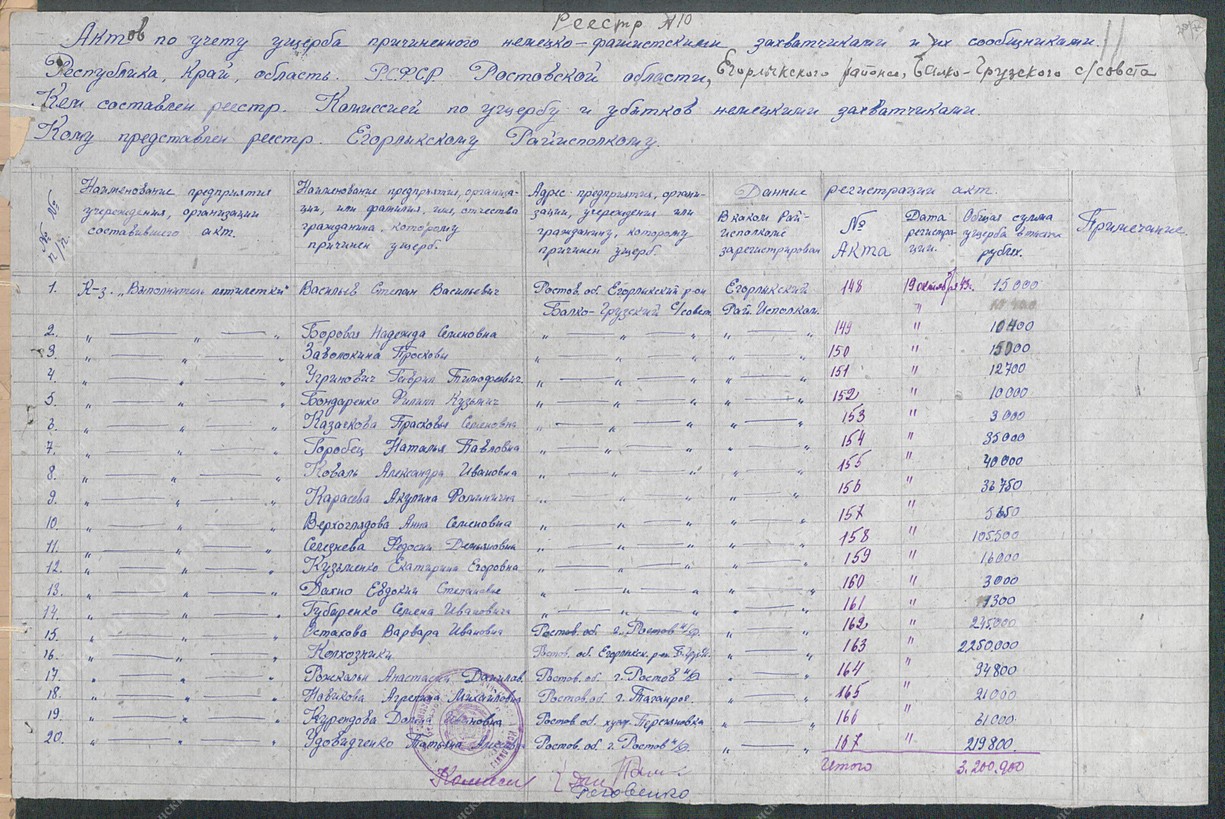 Реестр №10
Актов по учету ущерба причиненного немецко-фашистскими захватчиками и их сообщниками.
Республика, Край, область. РСФСР Ростовской области, Егорлыкского района, Балко-Грузского с/совета
Кем составлен реестр. Комиссией по ущербу и убытков немецкими захватчиками.
Кому представлен реестр. Егорлыкскому Райисполкому.
№№ п/п. Наименование предприятия учереждения, организации составившего акт. Наименование предприятия, организации, или фамилия, имя, отчества гражданина, которому причинен ущерб. Адрес предприятия, организации, учереждения или гражданину, которому причинен ущерб. Данные регистрации акт. В каком Райисполкоме зарегистрирован № Акта Дата регистрации. Общая сумма ущерба рублях. Примечание.
1. К-з. "Выполнитель пятилетки" Васильев Степан Васильевич Ростов. об. Егорлыкский р-он Егорлыкский 148 19 октября 43. 15000
Балко-Грузский С/совет Рай. Исполком. "
2. " — " — " Боровая Надежда Семеновна " — " — " " — " 149 " 10400
3. " — " — " Заволокина Просковья " — " — " " — " 150 " 15000
4. " — " — " Угринович Гаврил Тимофеевич. " — " — " " — " 151 " 12700
5. " — " — " Бондаренко Филипп Кузьмич " — " — " " — " 152 " 10000
6. " — " — " Казачкова Прасковья Семеновна " — " — " " — " 153 " 3000
7. " — " — " Горобец Наталья Павловна " — " — " " — " 154 " 35000
8. " — " — " Коваль Александра Ивановна " — " — " " — " 155 " 40000
9. " — " — " Карасева Акулина Фоминична " — " — " " — " 156 " 36750
10. " — " — " Верхоглядова Анна Семеновна " — " — " " — " 157 " 5650
11. " — " — " Селезнева Федосия Демьяновна " — " — " " — " 158 " 105500
12. " — " — " Кузьменко Екатерина Егоровна " — " — " " — " 159 " 16000
13. " — " — " Дахно Евдокии Степановне " — " — " " — " 160 " 3000
14. " — " — " Губаренко Семена Ивановича " — " — " " — " 161 " 7300
15. " — " — " Остахова Варвара Ивановна Ростов. об. г. Ростов н/Д. " — " 162 " 245000
16. " — " — " Колхозники. Ростов. об. Егорлыкск. р-он " — " 163 " 2250000
17. " — " — " Рожкалн Анастасия Данилов. Ростов. об. г. Ростов н/Д " — " 164 " 94800
18. " — " — " Новикова Агрепина Михайловна Ростов. об. г. Таганрог. " — " 165 " 21000
19. " — " — " Курендова Ростов. об. хутор. " — " 166 " 61000.
20. " — " — " Удовидченко Татьяна Ростов. об. г. Ростов н/Д. " — " 167 " 219800.
Итого 3.200.900
Комиссия